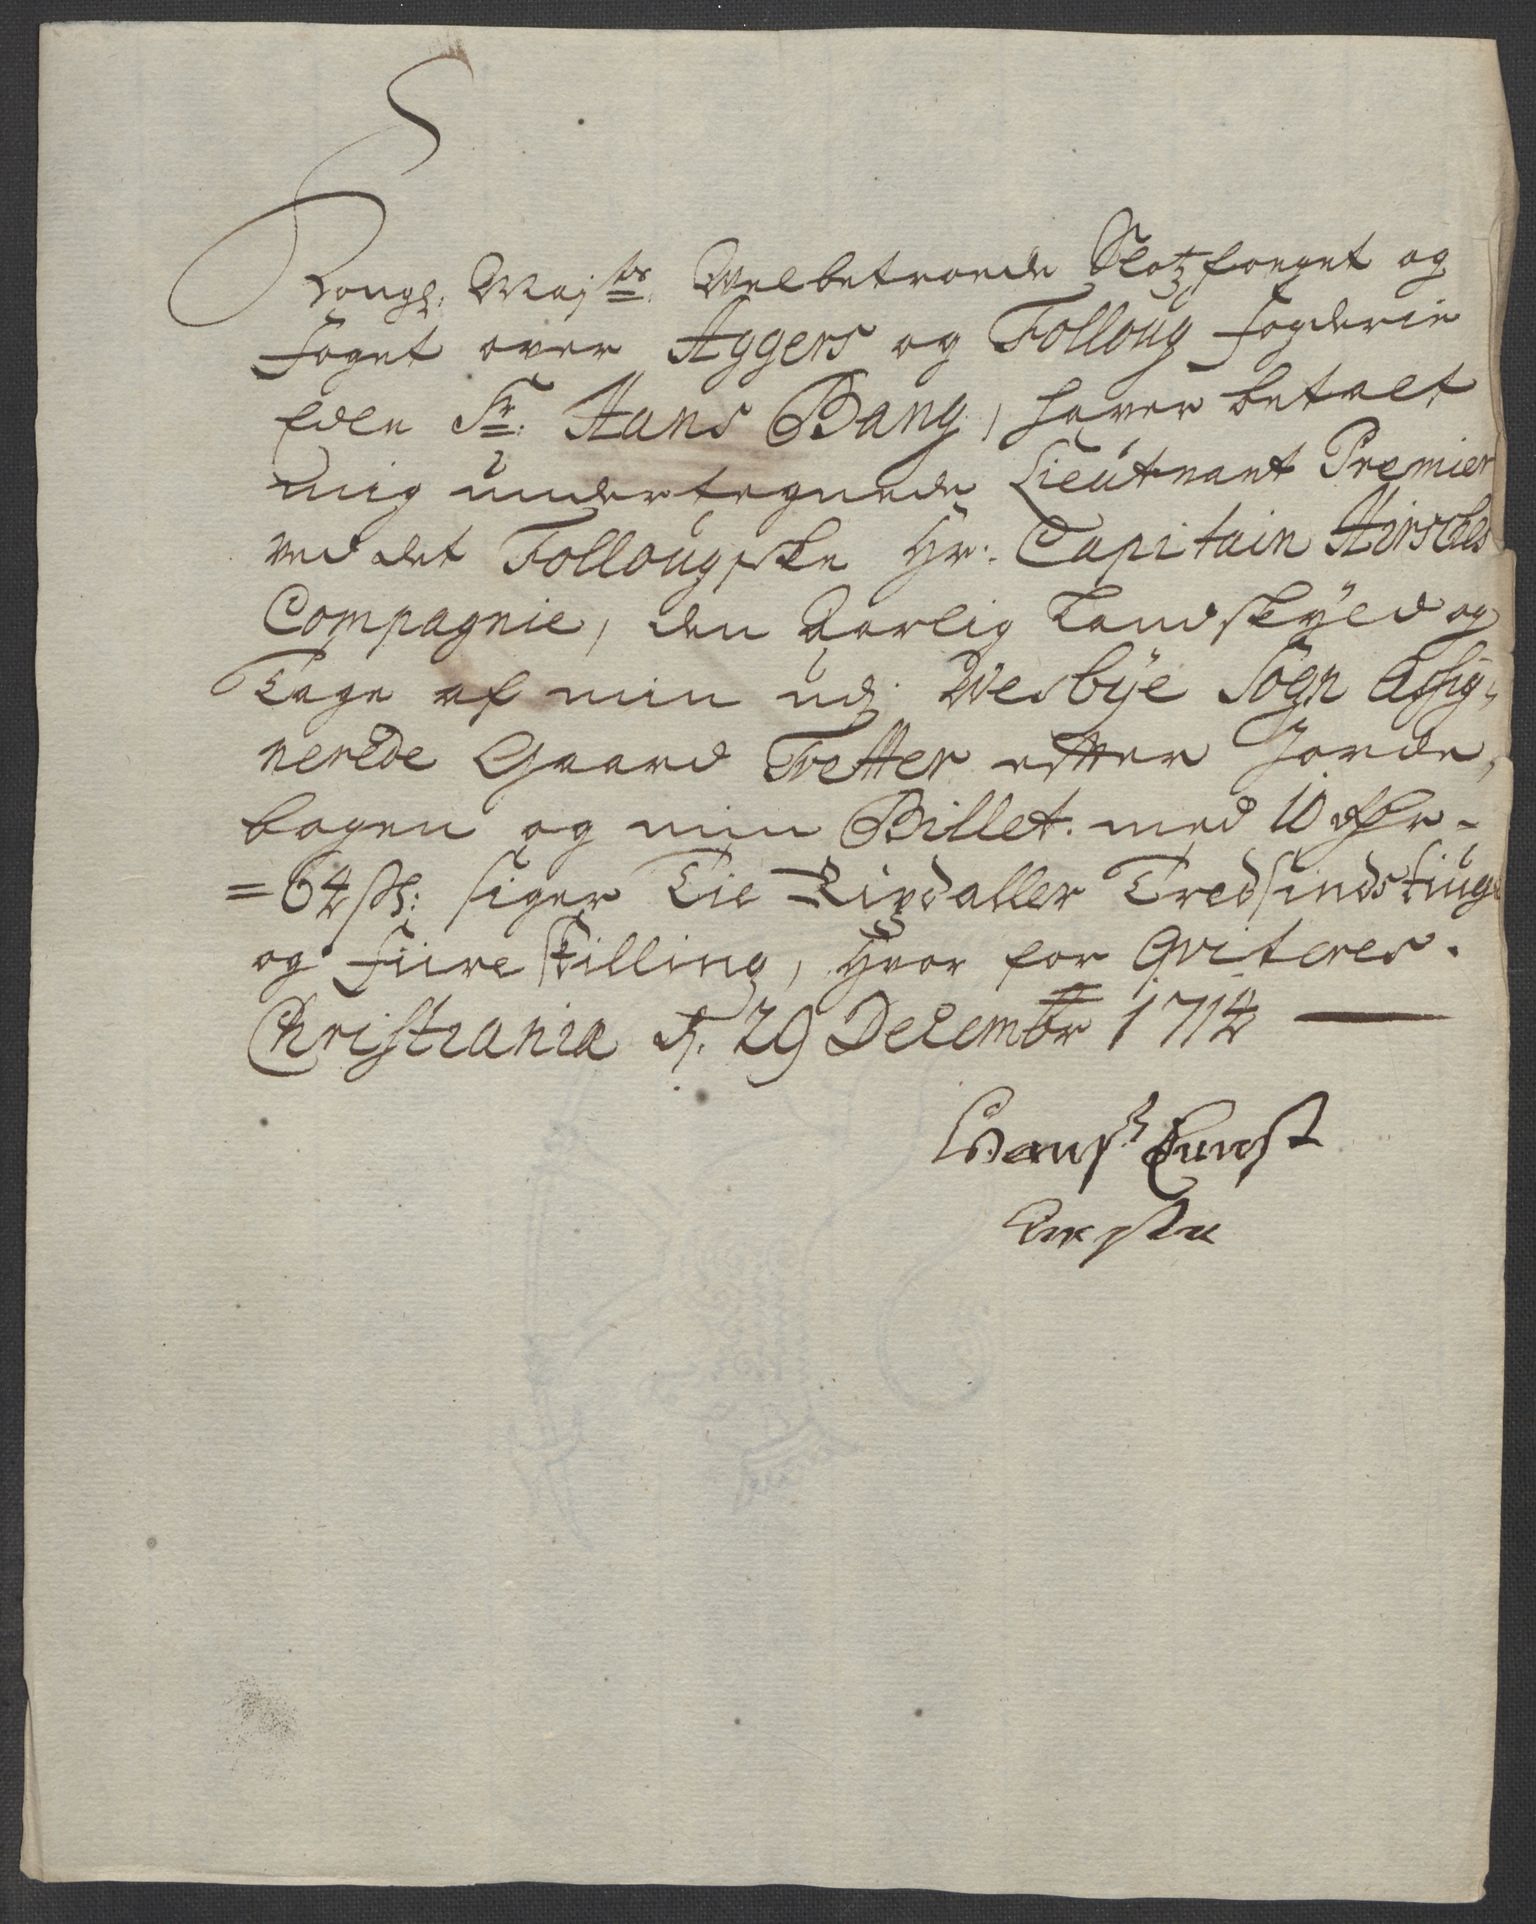 Kongl: Maj:ts Welbetroede Slotzfoeget og
Foget over Aggers og Folloug Fogderie
Edle Sr: Hans Bang, hafver betalt
mig undertegnede Lieutnant Premier
ved det Follougske Hr: Capitain Hirsches
Compagnie, den Aarlig Landskyld og
Tage af min udj Wesbye Sogn Assig-
nerede Gaard Tretter efter Jorde-
bogen og min Billet med 10 Rdr -
= 64 sk: siger Tie Rixdaller Tredsindstiuge
og Fiire skilling, Hvor for Qviteres.
Christiania d. 29 Decembr 1714
Ernst